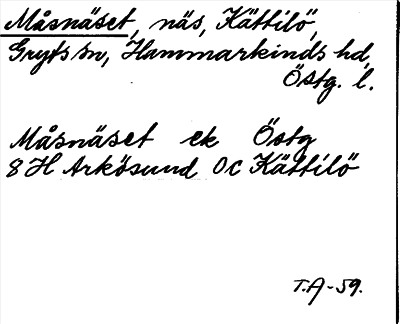 Måsnäset, näs, Kättilö,
Gryts sn, Hammarkinds hd,
Östg. l.
Måsnäset ek Östg
8H Arkösund 0c Kättilö
T.A-59.